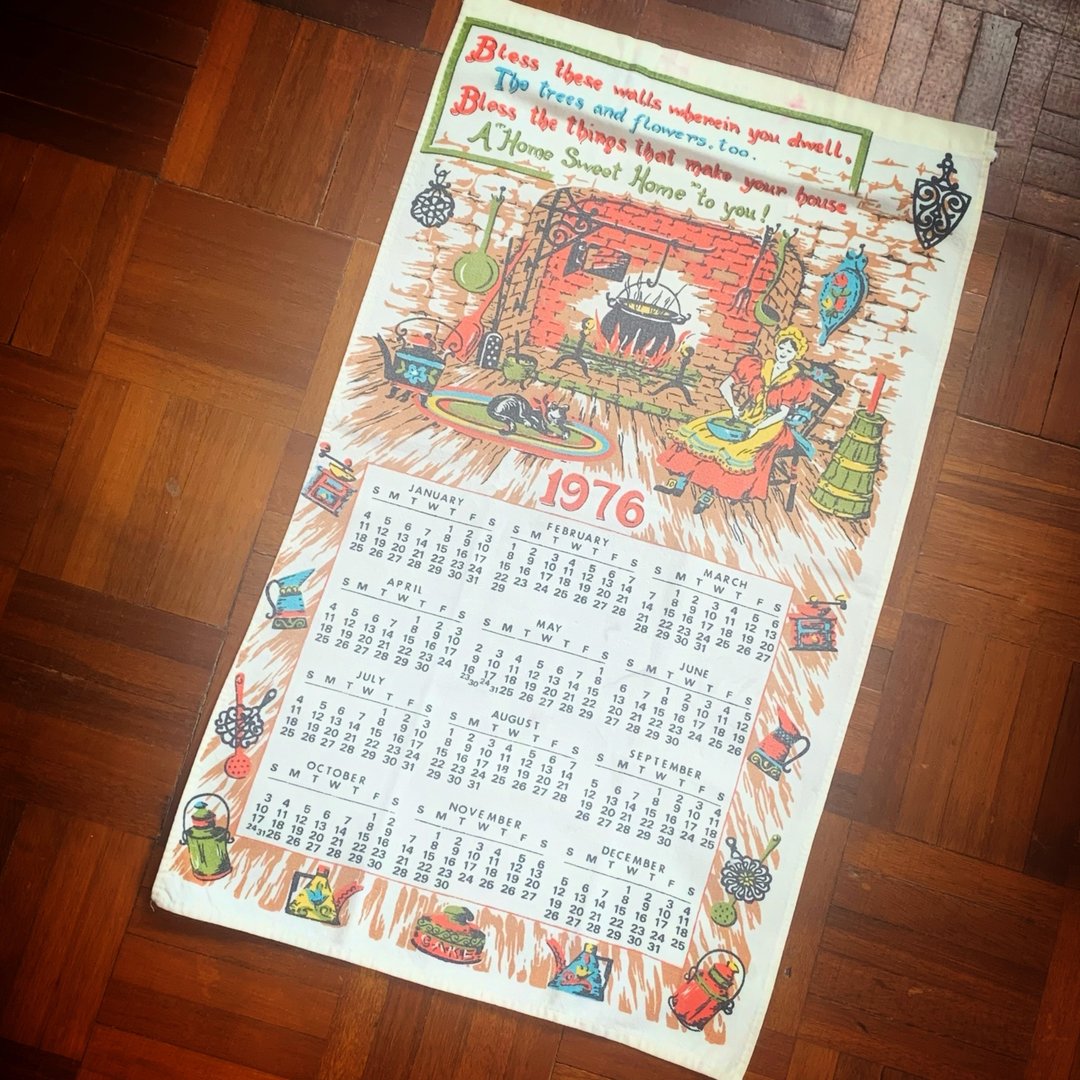 Bless these walls wherein you dwell,
The trees and flowers, too.
Bless the things that make your house
A "Home Sweet Home" to you!
1976
JANUARY
S M T W T F S
1 2 3
4 5 6 7 8 9 10
11 12 13 14 15 16 17
18 19 20 21 22 23 24
25 26 27 28 29 30 31
FEBRUARY
S M T W T F S
1 2 3 4 5 6 7
8 9 10 11 12 13 14
15 16 17 18 19 20 21
22 23 24 25 26 27 28
29
MARCH
S M T W T F S
1 2 3 4 5 6
7 8 9 10 11 12 13
14 15 16 17 18 19 20
21 22 23 24 25 26 27
28 29 30 31
APRIL
S M T W T F S
1 2 3
4 5 6 7 8 9 10
11 12 13 14 15 16 17
18 19 20 21 22 23 24
25 26 27 28 29 30
MAY
S M T W T F S
1
2 3 4 5 6 7 8
9 10 11 12 13 14 15
16 17 18 19 20 21 22
23 30 24 31 25 26 27 28 29
JUNE
S M T W T F S
1 2 3 4 5
6 7 8 9 10 11 12
13 14 15 16 17 18 19
20 21 22 23 24 25 26
27 28 29 30
JULY
S M T W T F S
1 2 3
4 5 6 7 8 9 10
11 12 13 14 15 16 17
18 19 20 21 22 23 24
25 26 27 28 29 30 31
AUGUST
S M T W T F S
1 2 3 4 5 6 7
8 9 10 11 12 13 14
15 16 17 18 19 20 21
22 23 24 25 26 27 28
29 30 31
SEPTEMBER
S M T W T F S
1 2 3 4
5 6 7 8 9 10 11
12 13 14 15 16 17 18
19 20 21 22 23 24 25
26 27 28 29 30
OCTOBER
S M T W T F S
1 2
3 4 5 6 7 8 9
10 11 12 13 14 15 16
17 18 19 20 21 22 23
24 31 25 26 27 28 29 30
NOVEMBER
S M T W T F S
1 2 3 4 5 6
7 8 9 10 11 12 13
14 15 16 17 18 19 20
21 22 23 24 25 26 27
28 29 30
DECEMBER
S M T W T F S
1 2 3 4
5 6 7 8 9 10 11
12 13 14 15 16 17 18
19 20 21 22 23 24 25
26 27 28 29 30 31
CAKE